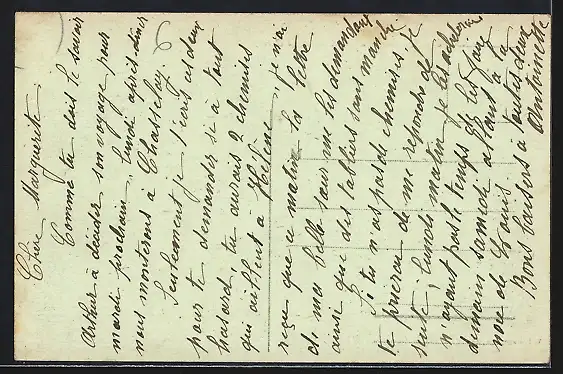 Chère Marguerite
Comme tu dois le savoir
Arthur a décidé son voyage pour
mardi prochain, lundi après diner
nous monterons à Chasselay.
Seulement je t'écris ces deux
pour te demander si à tout
hasard, tu aurais 2 chemises
qui aillent à Hélène, je n'ai
reçu que ce matin la lettre
de ma belle sœur me les demandant
ainsi que des tabliers sans manches
Si tu n'as pas de chemises, je
te prierai de me répondre de
suite, lundi matin je les achèterai
n'ayant pas le temps de les faire
demain samedi allant à la
noce de Louis
Bons baisers à toutes deux
Antoinette